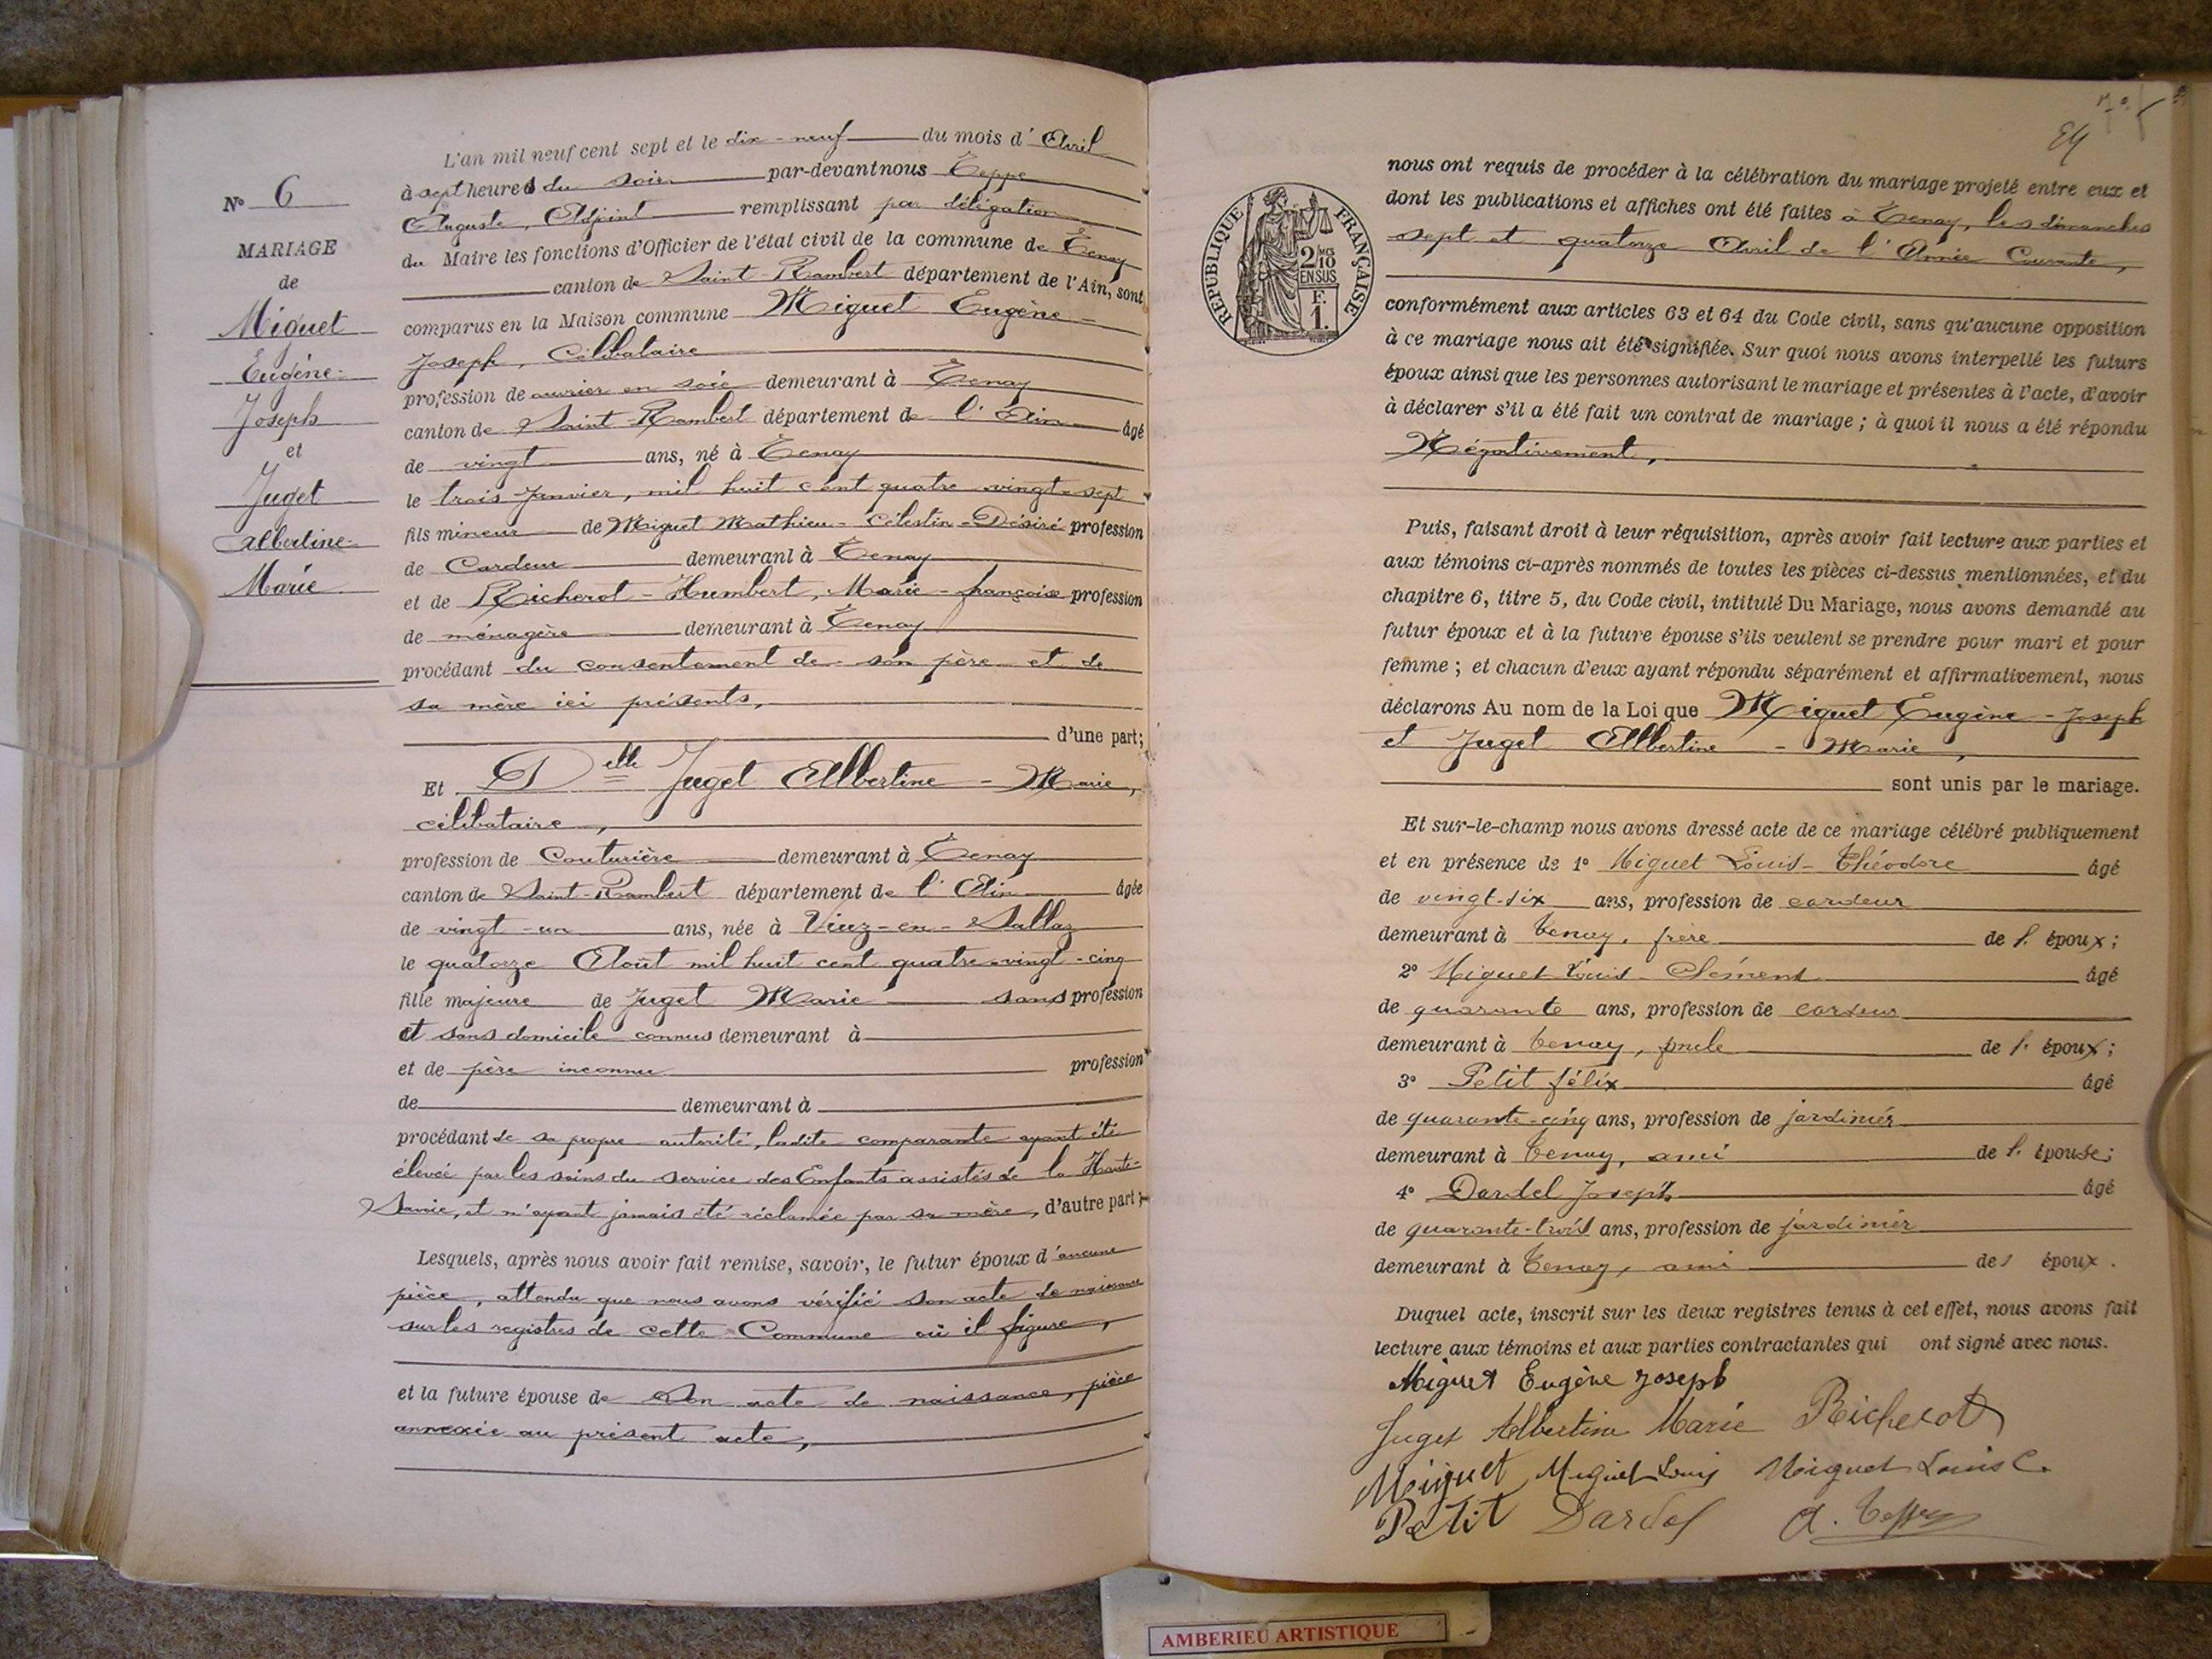 N° 6
MARIAGE
de
Miguet
Eugène-
Joseph
et
Juget
Albertine-
Marie
L'an mil neuf cent sept et le dix-neuf du mois d'Avril
à sept heures du soir par-devant nous Teppe
Auguste, Adjoint remplissant par délégation
du Maire les fonctions d'Officier de l'état civil de la commune de Tenay
canton de Saint-Rambert département de l'Ain, sont
comparus en la Maison commune Miguet Eugène-
Joseph, Célibataire
profession de ouvrier en soie demeurant à Tenay
canton de Saint-Rambert département de l'Ain âgé
de vingt ans, né à Tenay
le trois Janvier, mil huit cent quatre-vingt-sept
fils mineur de Miguet Mathieu-Célestin-Désiré profession
de Cardeur demeurant à Tenay
et de Richerot-Humbert, Marie-françoise profession
de ménagère demeurant à Tenay
procédant du consentement de son père et de
sa mère ici présents,
d'une part;
Et Delle Juget Albertine-Marie,
célibataire,
profession de Couturière demeurant à Tenay
canton de Saint-Rambert département de l'Ain âgée
de vingt-un ans, née à Viuz-en-Sallaz
le quatorze Août mil huit cent quatre-vingt-cinq
fille majeure de Juget Marie sans profession
et sans domicile connus demeurant à
et de père inconnu profession
de demeurant à
procédant de sa propre autorité, ladite comparante ayant été
élevée par les soins du service des Enfants assistés de la Haute-
Savoie, et n'ayant jamais été réclamée par sa mère, d'autre part;
Lesquels, après nous avoir fait remise, savoir, le futur époux d'aucune
pièce, attendu que nous avons vérifié son acte de naissance
sur les registres de cette Commune où il figure,
et la future épouse de son acte de naissance, pièce
annexée au présent acte,
24
RÉPUBLIQUE FRANÇAISE
2/10
EN SUS
F.
1.
nous ont requis de procéder à la célébration du mariage projeté entre eux et
dont les publications et affiches ont été faites à Tenay, les dimanches
sept et quatorze Avril de l'Année Courante,
conformément aux articles 63 et 64 du Code civil, sans qu'aucune opposition
à ce mariage nous ait été signifiée. Sur quoi nous avons interpellé les futurs
époux ainsi que les personnes autorisant le mariage et présentes à l'acte, d'avoir
à déclarer s'il a été fait un contrat de mariage; à quoi il nous a été répondu
Négativement,
Puis, faisant droit à leur réquisition, après avoir fait lecture aux parties et
aux témoins ci-après nommés de toutes les pièces ci-dessus mentionnées, et du
chapitre 6, titre 5, du Code civil, intitulé Du Mariage, nous avons demandé au
futur époux et à la future épouse s'ils veulent se prendre pour mari et pour
femme; et chacun d'eux ayant répondu séparément et affirmativement, nous
déclarons Au nom de la Loi que Miguet Eugène-Joseph
et Juget Albertine-Marie,
sont unis par le mariage.
Et sur-le-champ nous avons dressé acte de ce mariage célébré publiquement
et en présence de 1° Miguet Louis-Théodore âgé
de vingt-six ans, profession de cardeur
demeurant à Tenay, frère de l'époux;
2° Miguet Louis-Clément âgé
de quarante ans, profession de cardeur
demeurant à Tenay, oncle de l'époux;
3° Petit félix âgé
de quarante-cinq ans, profession de jardinier
demeurant à Tenay, ami de l'épouse;
4° Dardel Joseph âgé
de quarante-trois ans, profession de jardinier
demeurant à Tenay, ami des époux.
Duquel acte, inscrit sur les deux registres tenus à cet effet, nous avons fait
lecture aux témoins et aux parties contractantes qui ont signé avec nous.
Miguet Eugène Joseph
Juget Albertine Marie Richerot
Miguet Miguet Louis Miguet Louis C.
Petit Dardel A. Teppe
AMBERIEU ARTISTIQUE